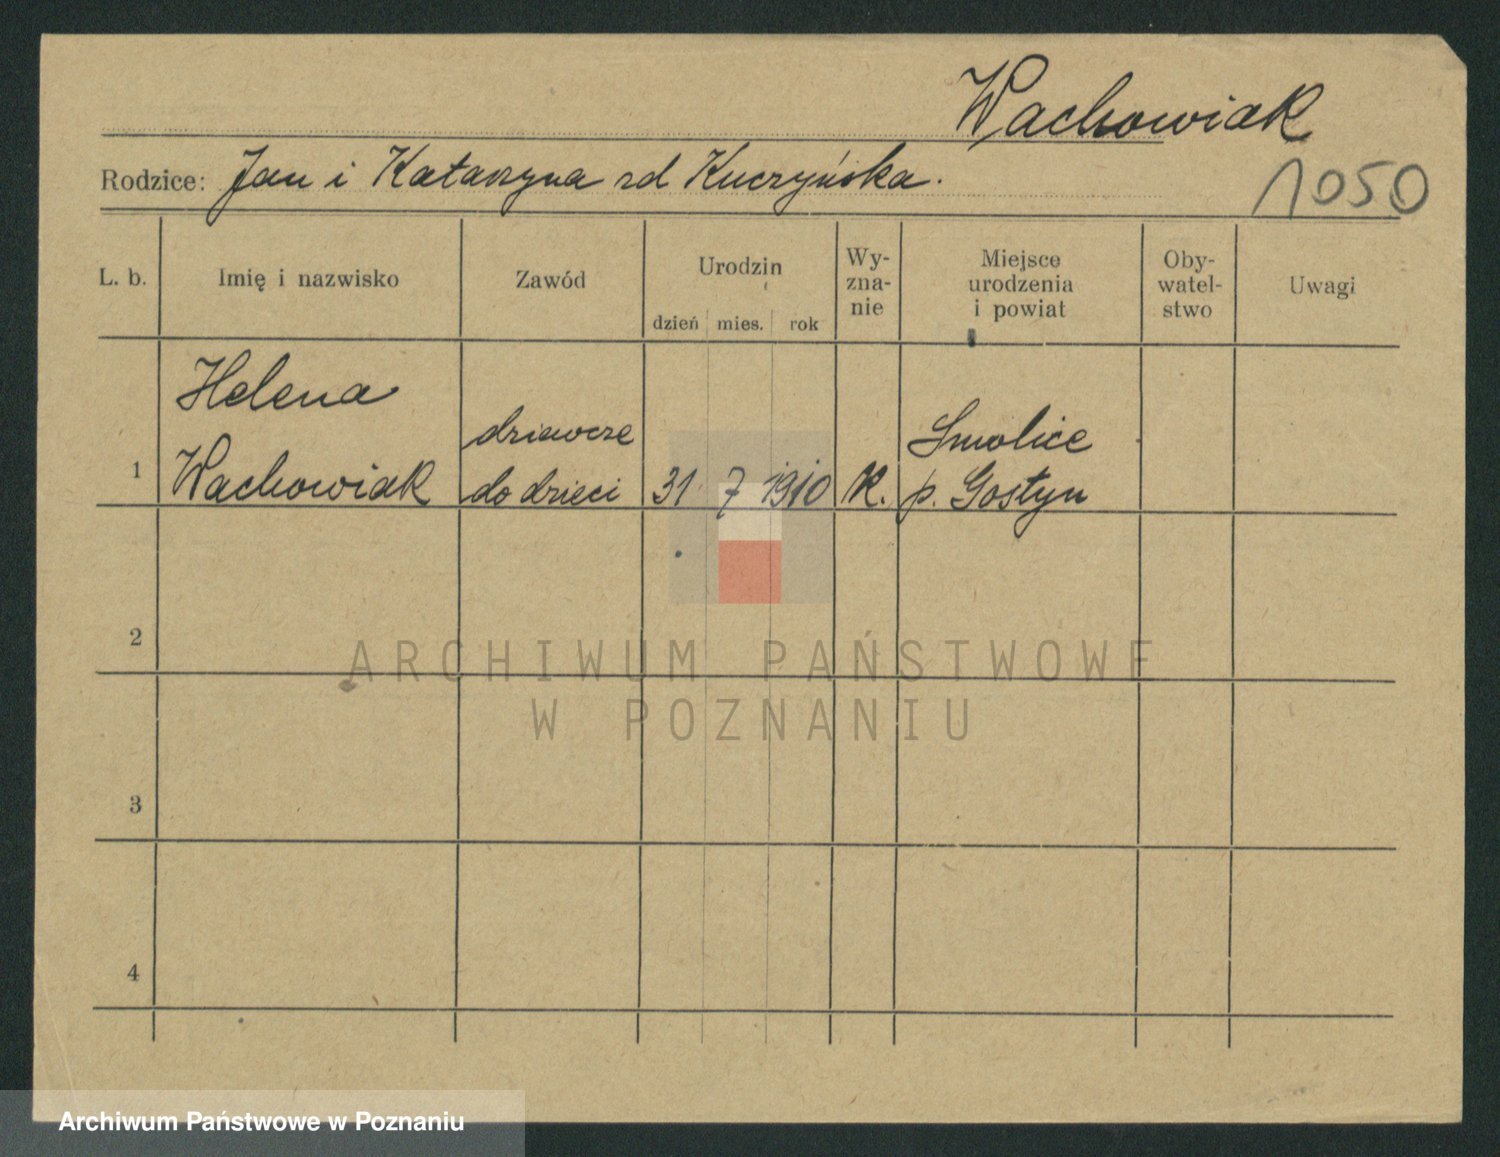 Wachowiak
Rodzice: Jan i Katarzyna rd Kuczyńska.
1050
L. b.
Imię i nazwisko
Zawód
Urodzin
dzień mies. rok
Wy-
zna-
nie
Miejsce
urodzenia
i powiat
Oby-
watel-
stwo
Uwagi
1
Helena
Wachowiak
dziewcze
do dzieci
31 7 1910
K.
Smolice
p. Gostyn
2
3
4
ARCHIWUM PAŃSTWOWE
W POZNANIU
Archiwum Państwowe w Poznaniu